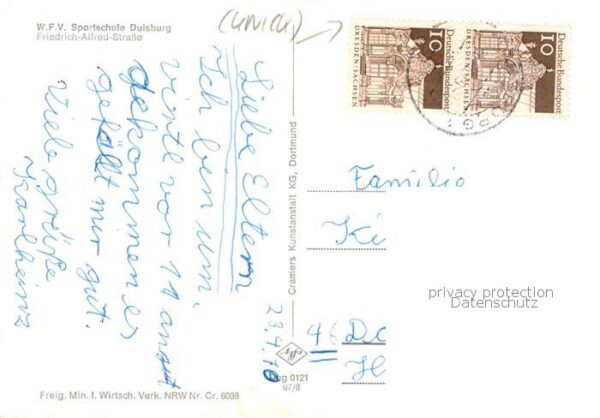 W.F.V. Sportschule Duisburg
Friedrich-Alfred-Straße
(UNICH)
Liebe Eltern
Ich ben um
virtl vor 11 anset
gekommen es
gefällt mir gut.
Viele grüße
Karlheinz
23.4.70
Cramers Kunstanstalt KG, Dortmund
Dug 0121
67/8
Freig. Min. f. Wirtsch. Verk. NRW Nr. Cr. 6088
10
Deutsche Bundespost
DRESDEN-SACHSEN
10
Deutsche Bundespost
DRESDEN-SACHSEN
Familie
Ki
46 Do
H
privacy protection
Datenschutz